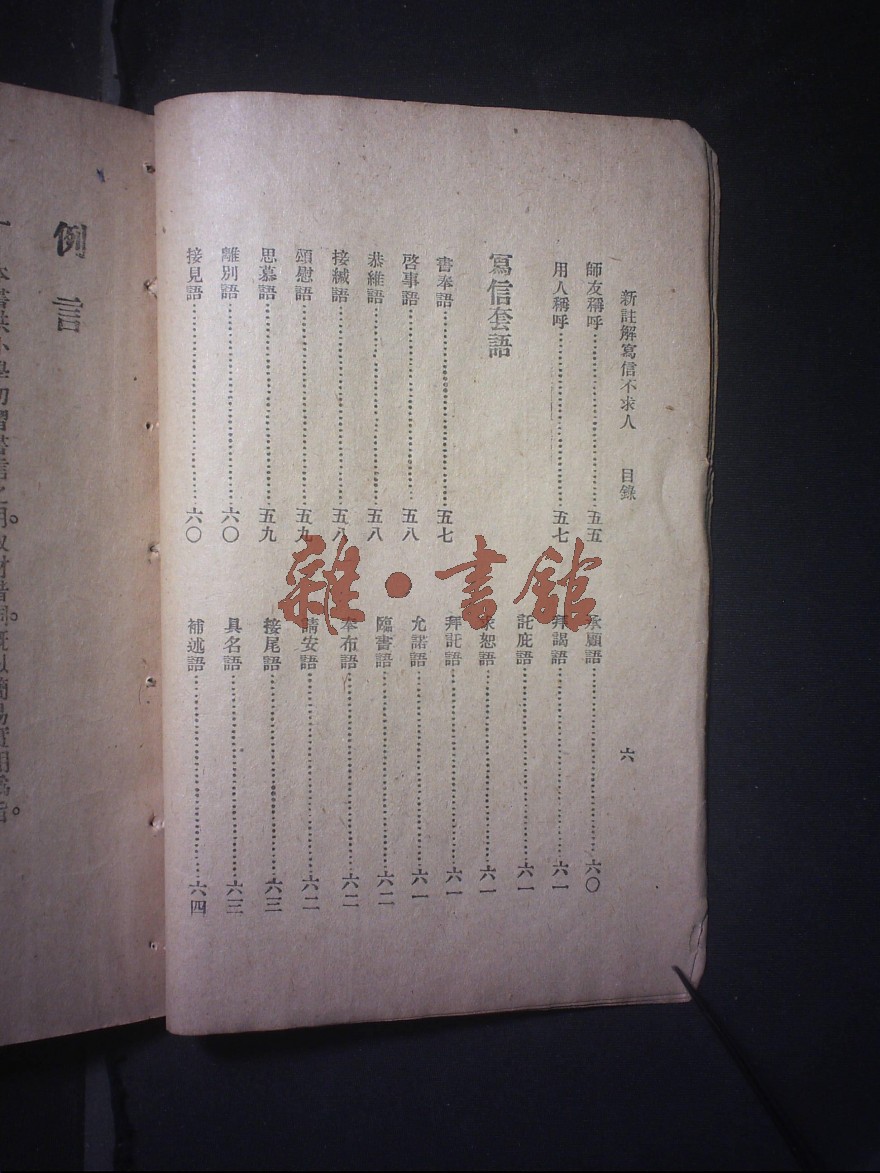 新註解寫信不求人 目錄 六
師友稱呼……五五
用人稱呼……五七
寫信套語
書奉語……五七
啓事語……五八
恭維語……五八
接緘語……五八
頌慰語……五九
思慕語……五九
離別語……六〇
接見語……六〇
承顧語……六〇
拜謁語……六一
託庇語……六一
求恕語……六一
拜託語……六一
允諾語……六一
臨書語……六二
奉布語……六二
請安語……六二
接尾語……六三
具名語……六三
補述語……六四
例言
雜·書館